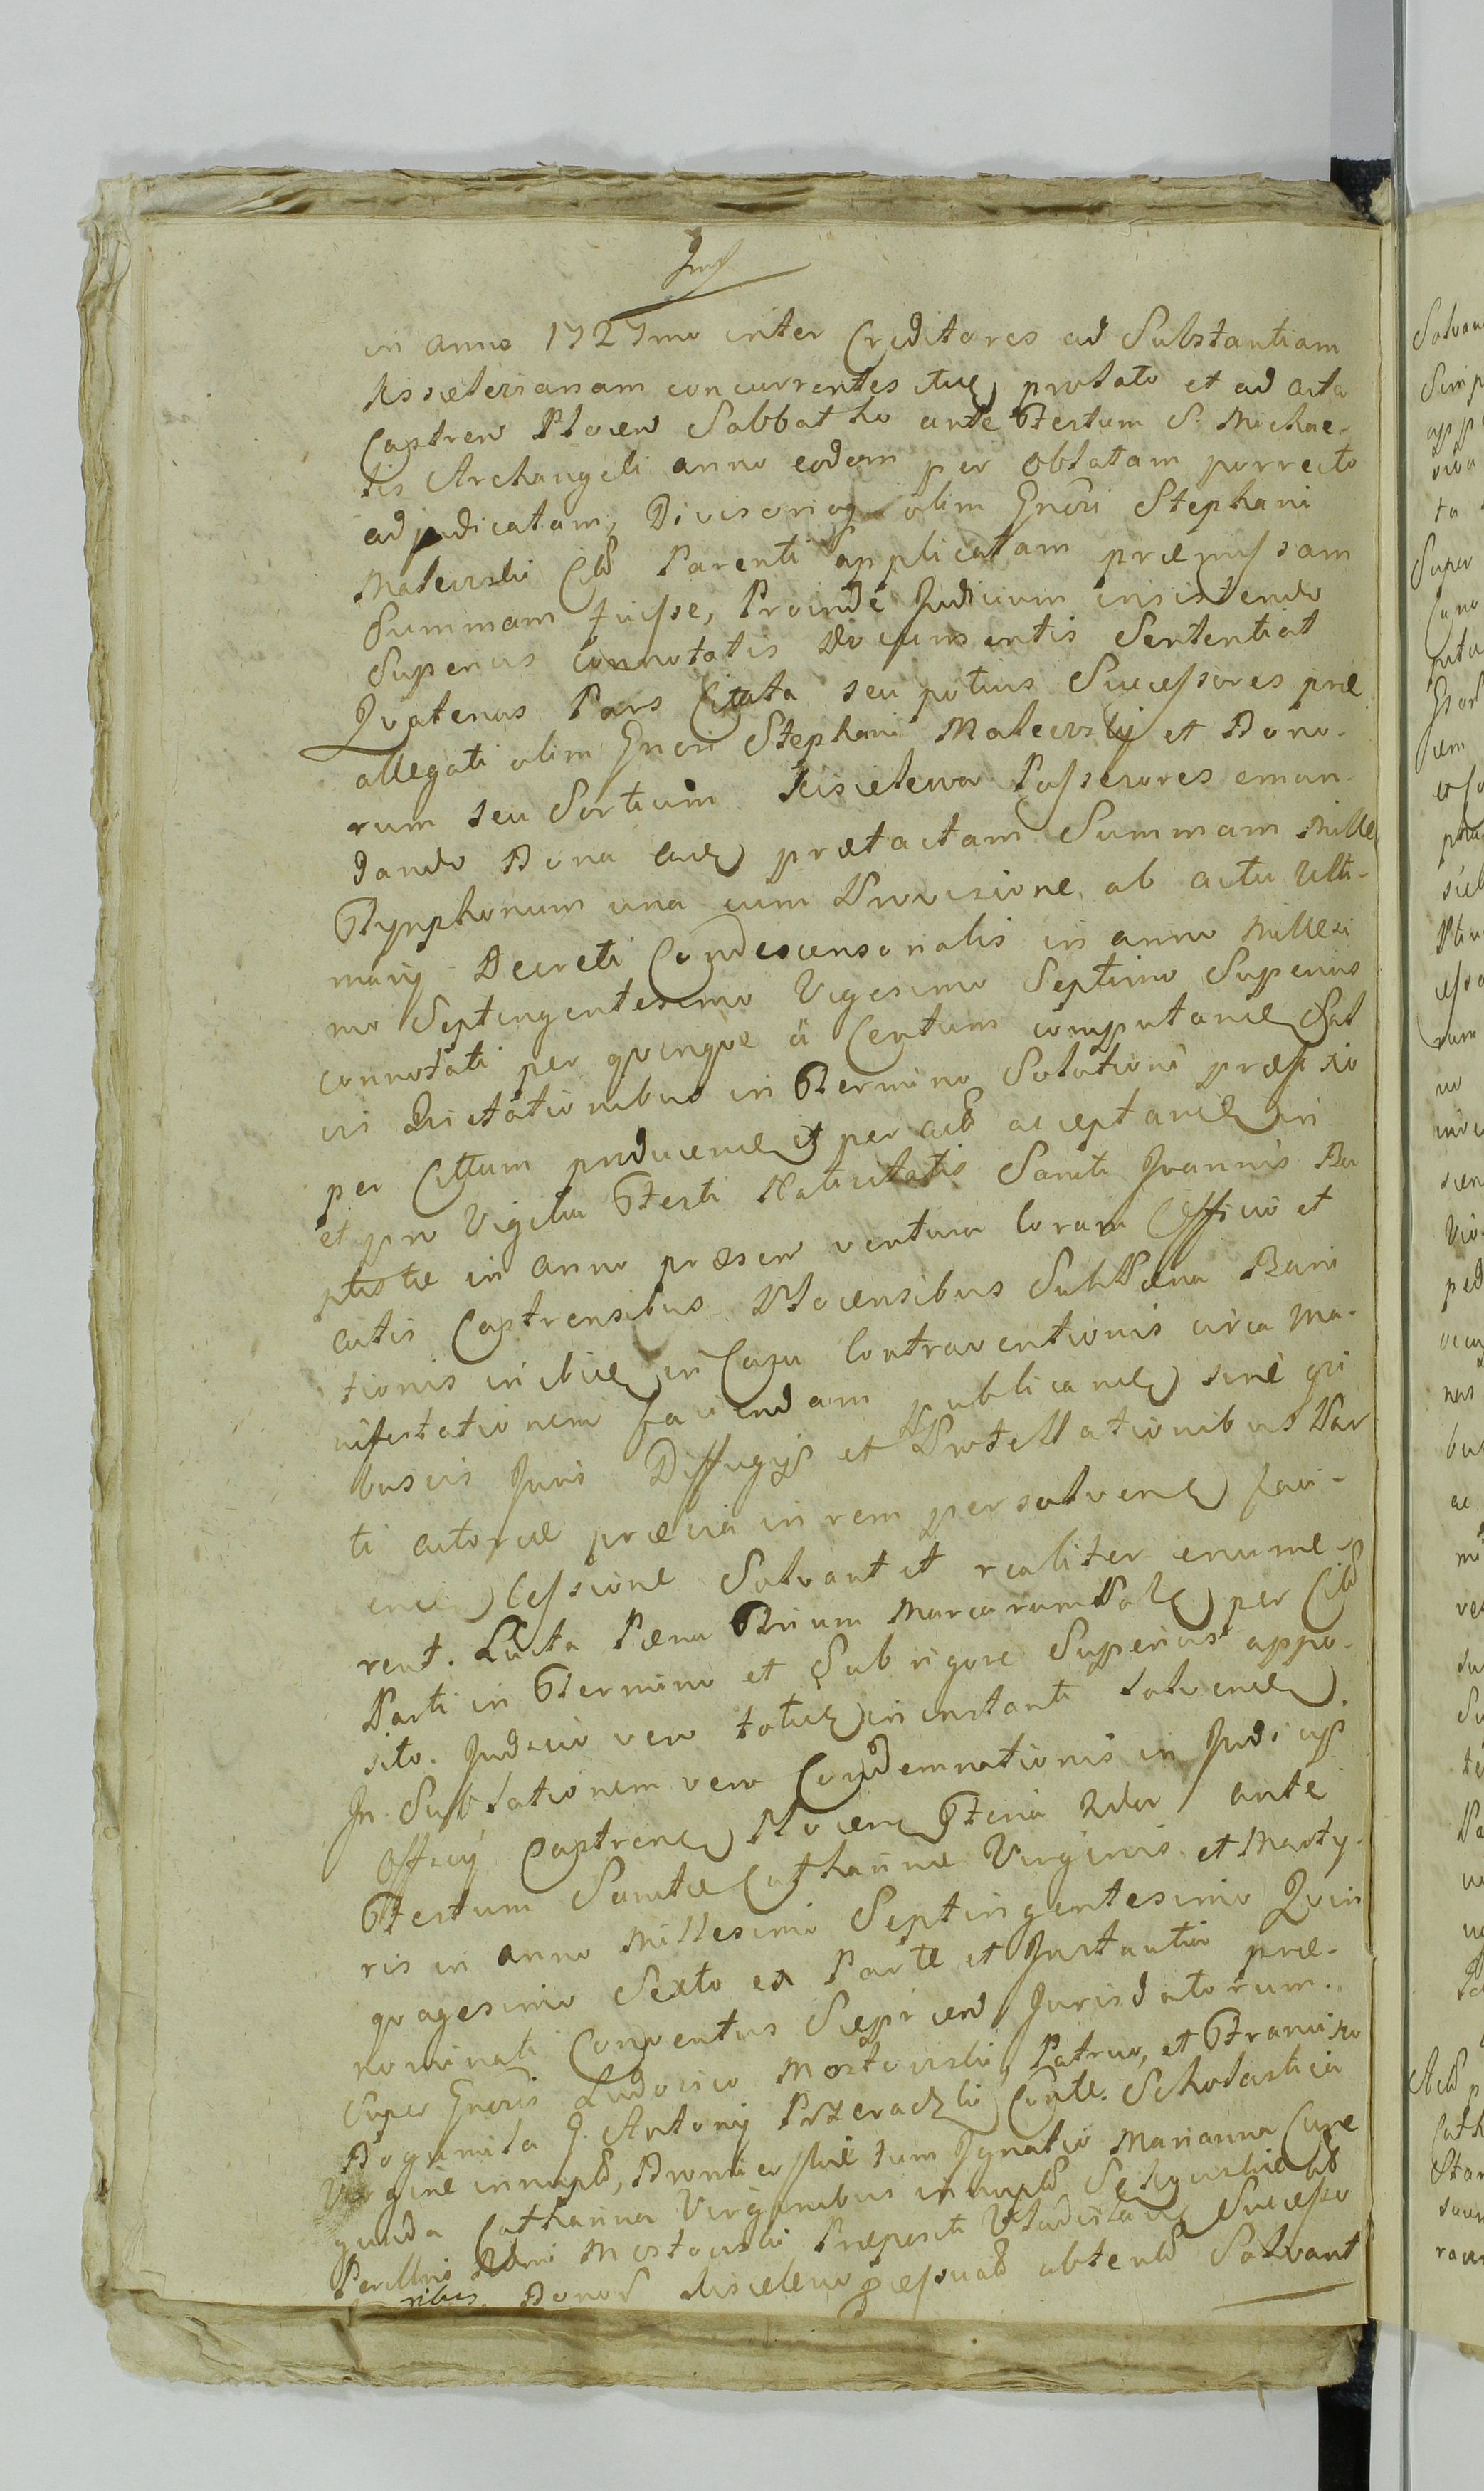 in anno 1727mo inter Creditores ad Substantiam
Kisielevianam concurrentes prolato et ad acta
Castren Plocen Sabbatho ante Festum S. Michae-
lis Archangeli anno eodem per Oblatam porrecto
adjudicatam, Divisorioq olim Gnosi Stephani
Malewski Parenti applicatam præmissam
Summam fuisse, Proinde Judicium insistendo
Superius connotatis Documentis Sententiat
Qvatenus Pars Citata seu potius Successores præ
allegati olim Gnosi Stephani Malewskij et Bono-
rum seu Sortium Kisielewo Possessores eman-
dando Bona prætactam Summam Mille
Tynphonum una cum Provisione ab actu Ulti-
marij Decreti Condescensorialis in anno Millesi
mo Septingentesimo Vigesimo Septimo Superius
connotati per qvinqve à Centum computan Sal
vis Qvietationibus in Termino Solutioni præfixo
per Cittum producen et per acceptan in
et pro Vigilia Festi Nativitatis Sancti Joannis Ba
ptistæ in anno præsen venturo Coram Officio et
actis Castrensibus Plocensibus Sub Pæna Bani
tionis in Casu Contraventionis circa Ma-
nifestationem faciendam publican sine qvi
busvis Juris Diffugijs et Protellationibus Par
ti actoreæ prævia in rem persolven faci-
en Cessione Solvant et realiter enume-
rent. Lucta Pæna Trium Marcarum Pol per
Parti in Termino et Sub rigore Superius appo-
sito. Judicio vero in instanti solven
In Sublationem vero Condemnationis in Judicijs
Officij Castren Plocen Feria 2da ante
Festum Sanctæ Catharinæ Virginis et Marty-
ris in anno Millesimo Septingentesimo Qvin
qvagesimo Sexto ex Parte et Instantia præ-
nominati Conventus Sieprcen Jurisdatorum
Super Gnosis Ludovico Mostowski, Patruo, et Francisco
Bogumila G. Antonij Przeradzki Conte. Scholastica
Virgine innup, tum Ignatio Marianna Cune
gunda Catharina Virginibus innup ab
Perillris Mostowski Præpositi Successo
ribus. Bonor Kisielewo obten Solvant